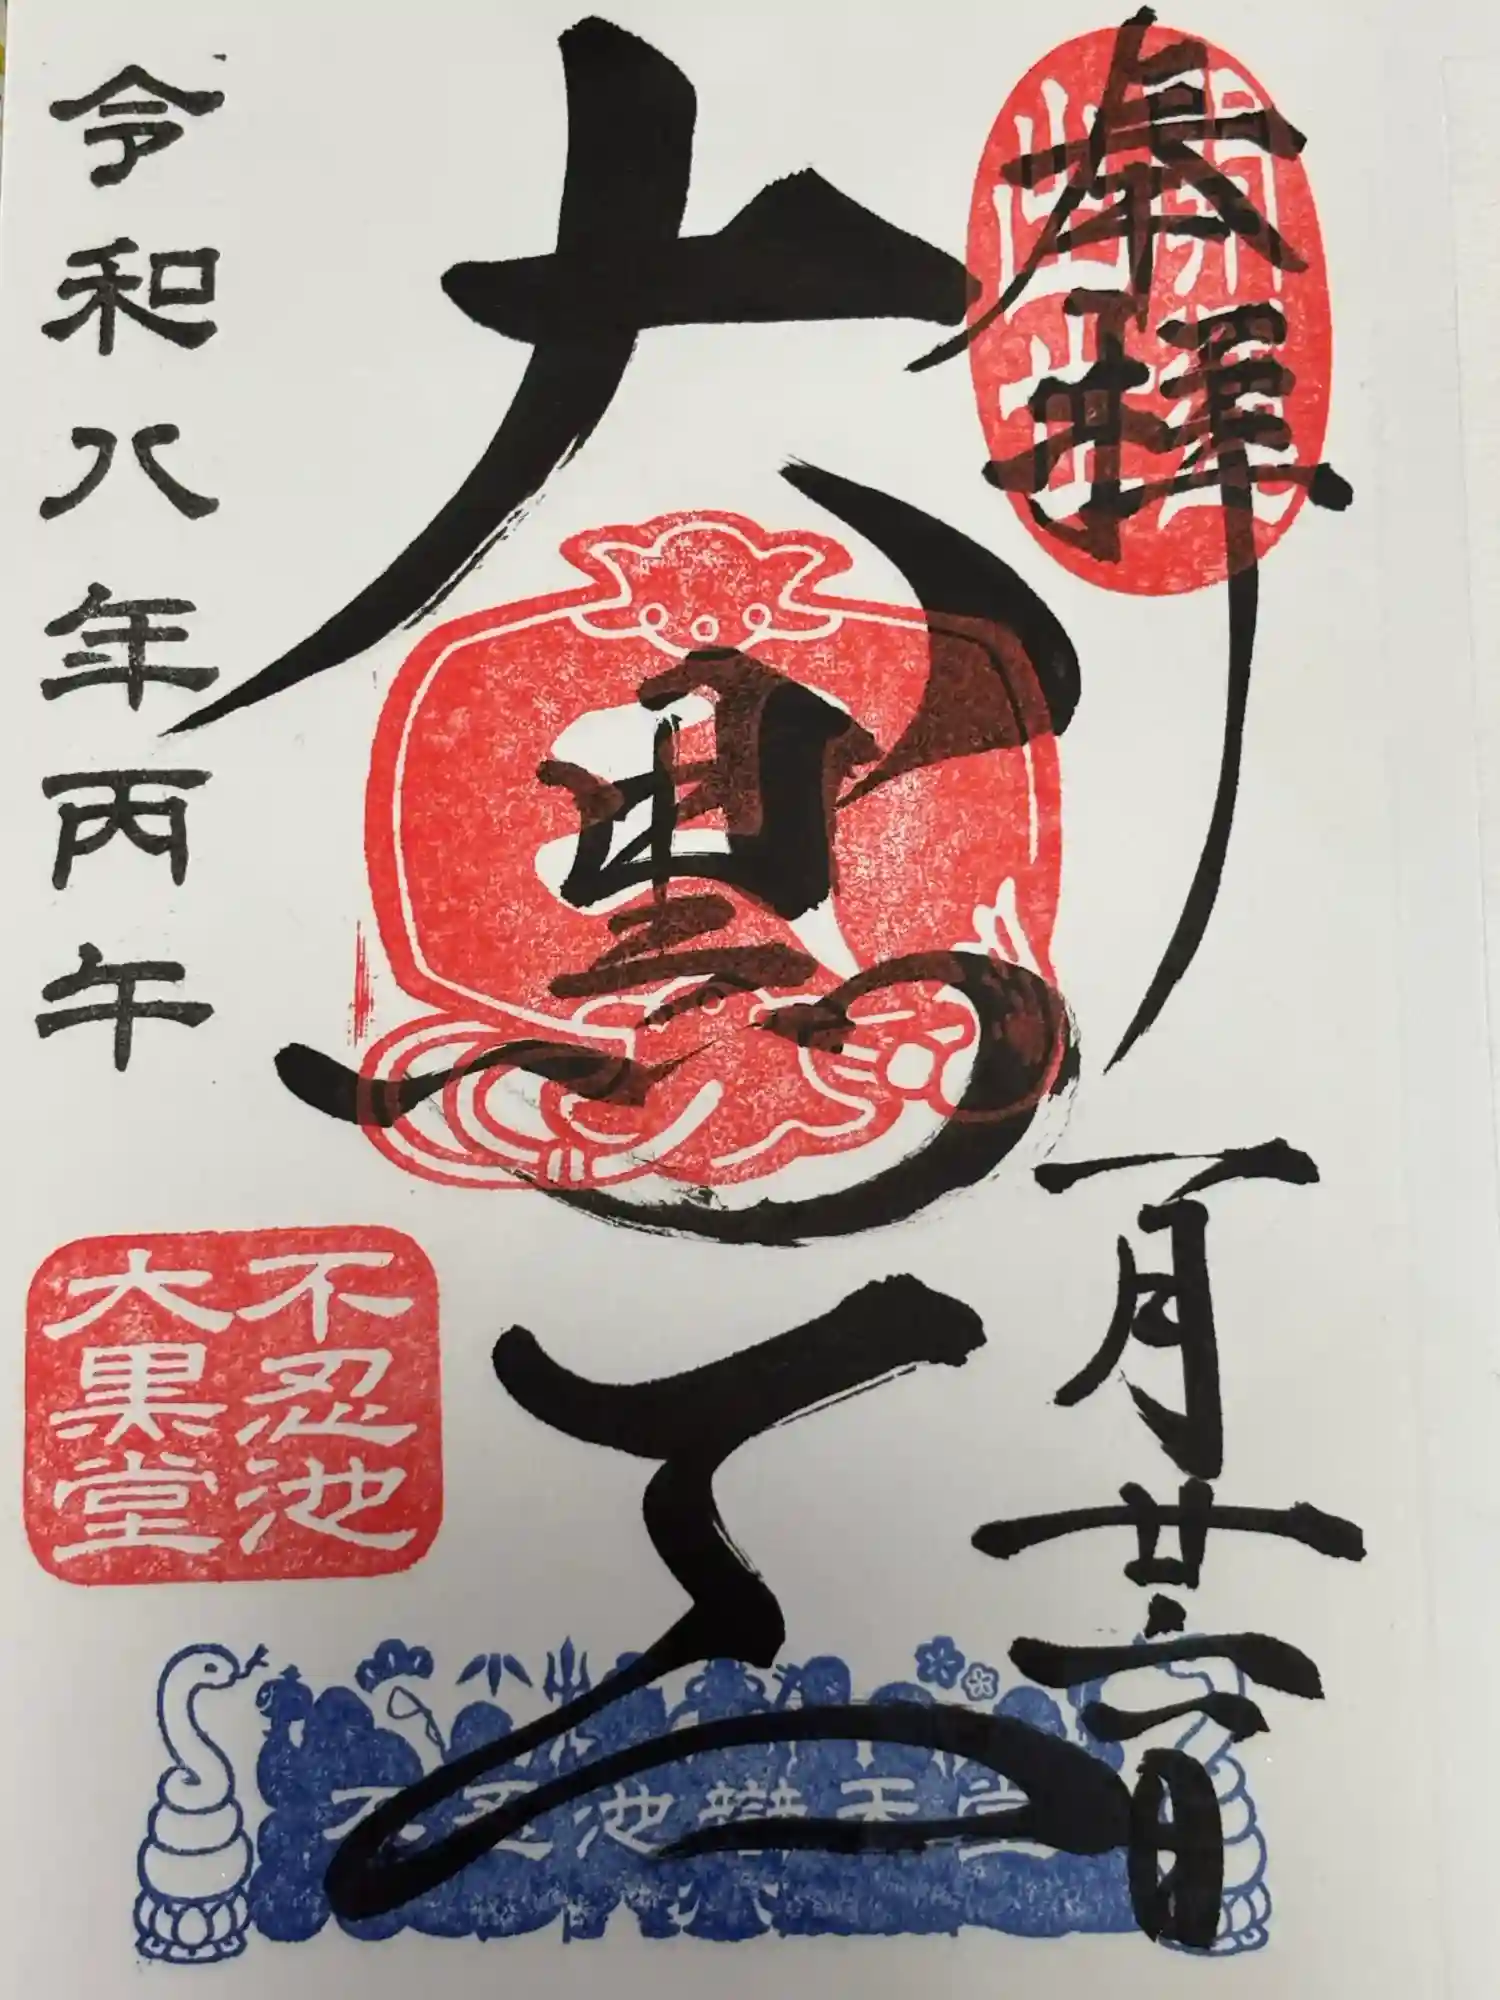 奉拝
開運
出世
一月廿
日
大黒天
令和八年丙午
不忍池
大黒堂
不忍池辯天堂